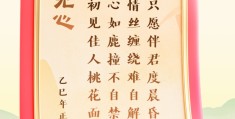 见心
初见佳人桃花面
心如鹿撞不自禁
情丝缠绕难自解
只愿伴君度晨昏
乙巳年正